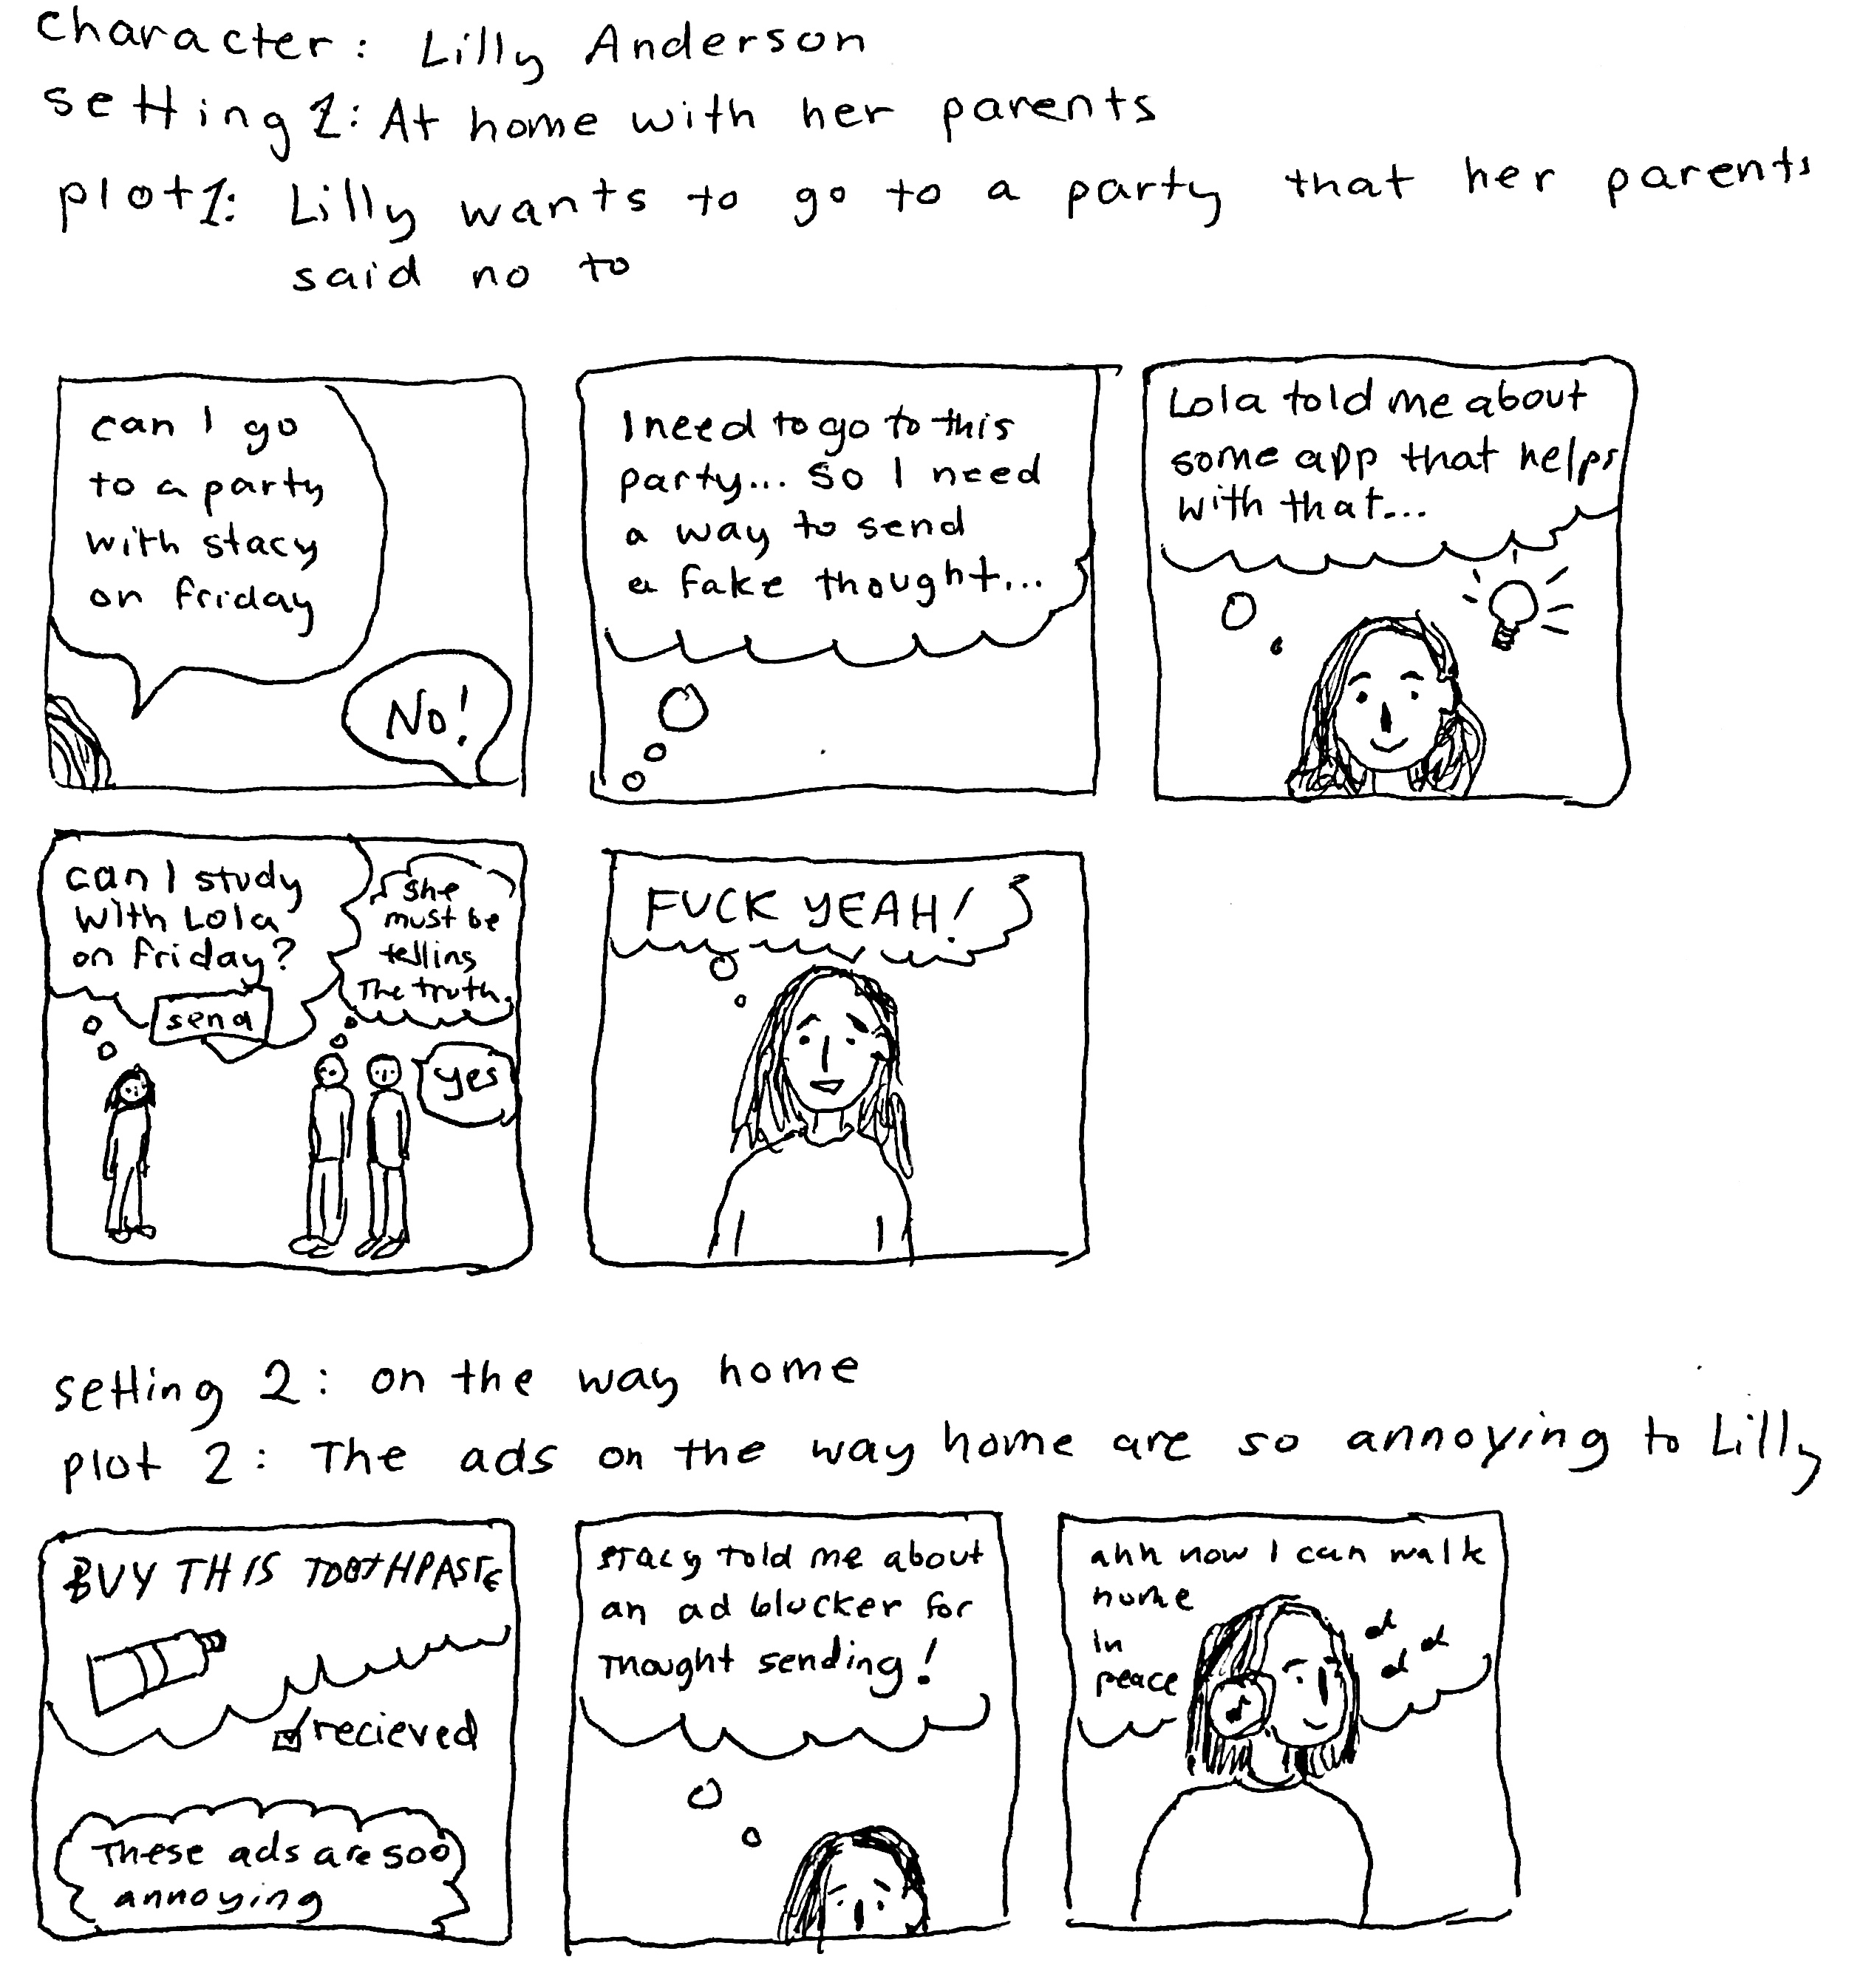 Character: Lilly Anderson
setting 1: At home with her parents
plot 1: Lilly wants to go to a party that her parents
said no to
can I go
to a party
with stacy
on friday
No!
I need to go to this
party... so I need
a way to send
a fake thought...
Lola told me about
some app that helps
with that...
can I study
with Lola
on friday?
send
she
must be
telling
The truth.
yes
FUCK YEAH!
setting 2: on the way home
plot 2: The ads on the way home are so annoying to Lilly
BUY THIS TOOTHPASTE
recieved
These ads are soo
annoying
stacy told me about
an ad blocker for
thought sending!
ahh now I can walk
home
in
peace